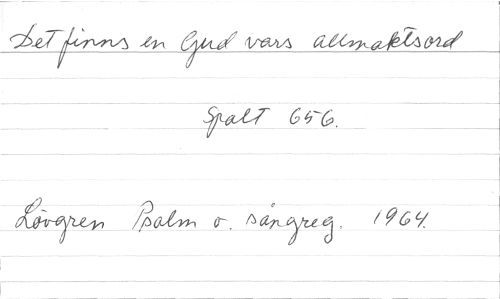 Det finns en Gud vars allmaktsord
Spalt 656.
Lövgren Psalm o. sångreg. 1964.